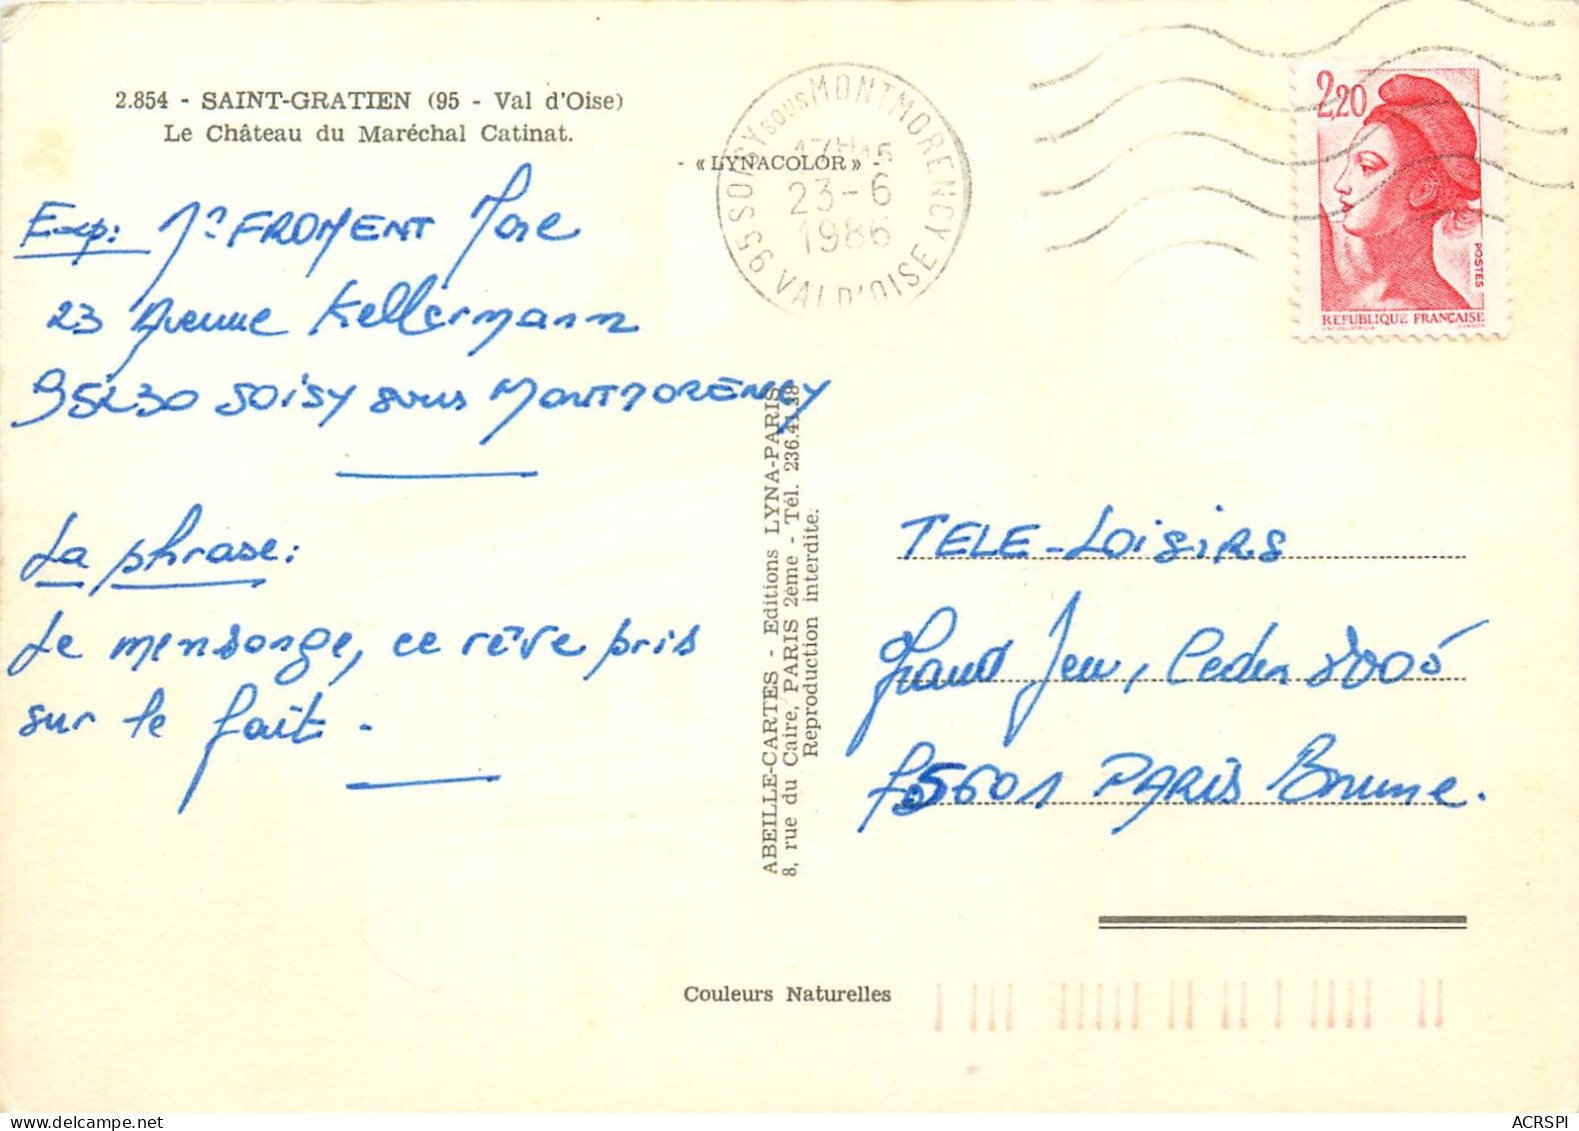 2.854 - SAINT-GRATIEN (95 - Val d'Oise)
Le Château du Maréchal Catinat.
- « LYNACOLOR » -
95 SOISY SOUS MONTMORENCY
17H15
23-6
1986
VAL D'OISE
2,20
POSTES
REPUBLIQUE FRANÇAISE
Exp: FROMENT
23 Avenue Kellermann
95230 SOISY sous MONTMORENCY
La phrase:
Le mensonge, ce rêve pris
sur le fait.
ABEILLE-CARTES - Editions LYNA-PARIS
8, rue du Caire, PARIS 2ème - Tél. 236.41.28
Reproduction interdite.
TELE-LOISIRS
Grand Jeu, Cedex
75601 PARIS Brune.
Couleurs Naturelles
ACRSPI